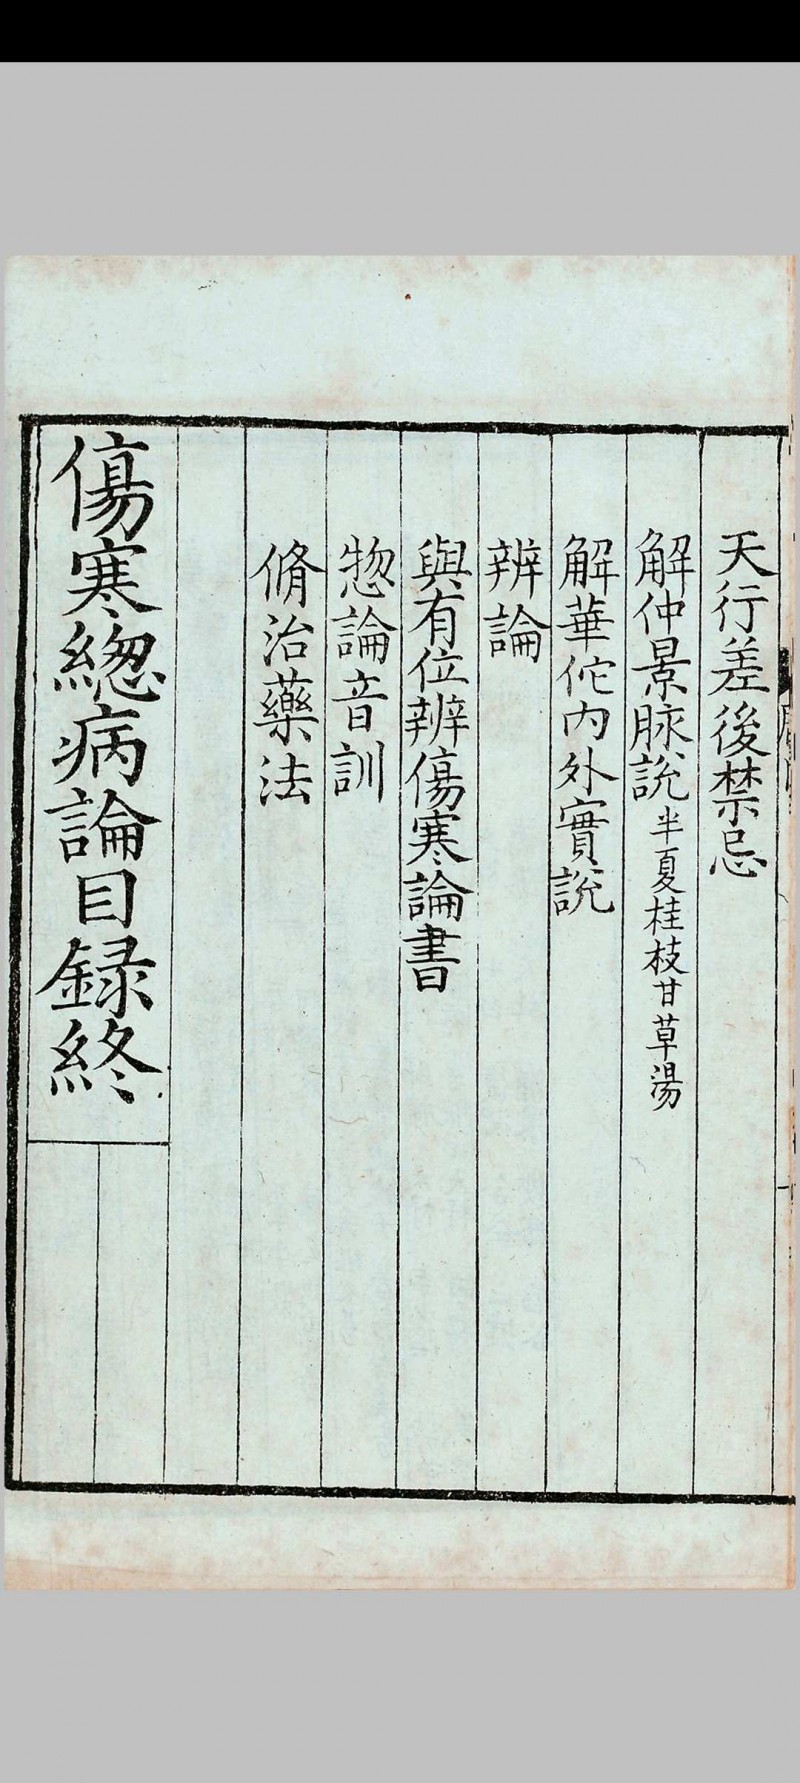 天行差後禁忌
解仲景脉說半夏桂枝甘草湯
解華佗內外實說
辨論
與有位辨傷寒論書
惣論音訓
脩治藥法
傷寒緫病論目録終